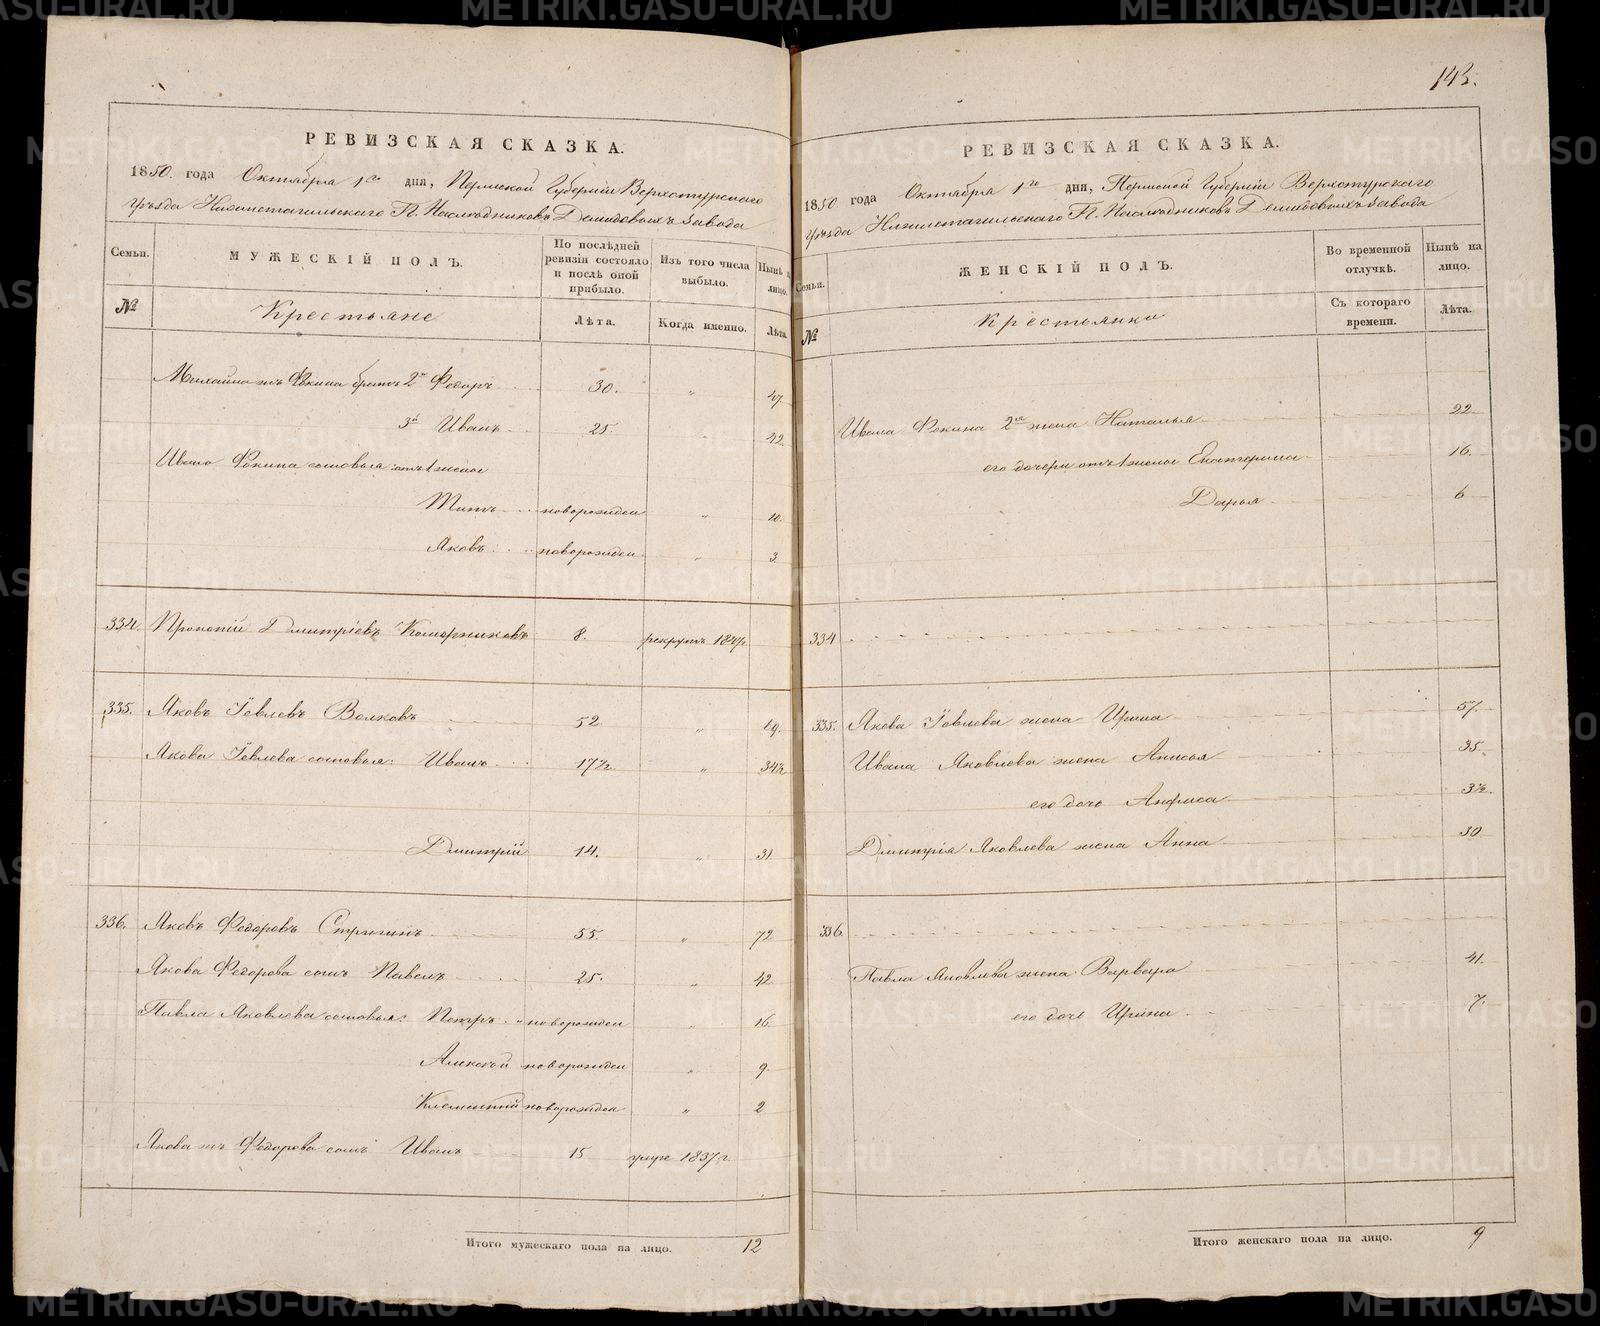 РЕВИЗСКАЯ СКАЗКА.
1850. года Октября 1го дня, Пермской Губернiи Верхотурского
Уѣзда Нижнетагильскаго Гг. Наслѣдниковъ Демидовыхъ Завода
Семьи.
МУЖЕСКIЙ ПОЛЪ.
По послѣдней ревизiи состояло и послѣ оной прибыло.
Изъ того числа выбыло.
Нынѣ на лицо.
№
Крестьяне
Лѣта.
Когда именно.
Лѣта.
Михаила жъ Фокина братъ 2й Федоръ 30. " 47.
3й Иванъ 25. " 42
Ивана Фокина сыновья отъ 1 жены
Титъ новорожден " 10.
Яковъ новорожден " 3
334. Прокопiй Дмитрiевъ Коморниковъ 8. рекрутъ 1847г
335. Яковъ Iевлевъ Волковъ 52 " 69.
Якова Iевлева сыновья: Иванъ 17½ " 34½
Дмитрiй 14. " 31.
336. Яковъ Федоровъ Стригинъ 55. " 72
Якова Федорова сынъ Павелъ 25. " 42
Павла Яковлева сыновья: Петръ новорожден " 16.
Алексѣй новорожден " 9
Климентiй новорожден " 2
Якова жъ Федорова сынъ Иванъ 15 умре 1837г.
Итого мужескаго пола на лицо. 12
143.
РЕВИЗСКАЯ СКАЗКА.
1850 года Октября 1го дня, Пермской Губернiи Верхотурского
Уѣзда Нижнетагильскаго Гг. Наслѣдниковъ Демидовыхъ Завода
Семьи.
ЖЕНСКIЙ ПОЛЪ.
Во временной отлучкѣ.
Нынѣ на лицо.
№
Крестьянки
Съ котораго времени.
Лѣта.
Ивана Фокина 2я жена Наталья 22.
его дочери отъ 1 жены Екатерина 16.
Дарья 6
334
335. Якова Iевлева жена Ирина 57.
Ивана Яковлева жена Анисья 35.
его дочь Анфиса 3½.
Дмитрiя Яковлева жена Анна 30
336.
Павла Яковлева жена Варвара 41.
его дочь Ирина 7.
Итого женскаго пола на лицо. 9
METRIKI.GASO-URAL.RU